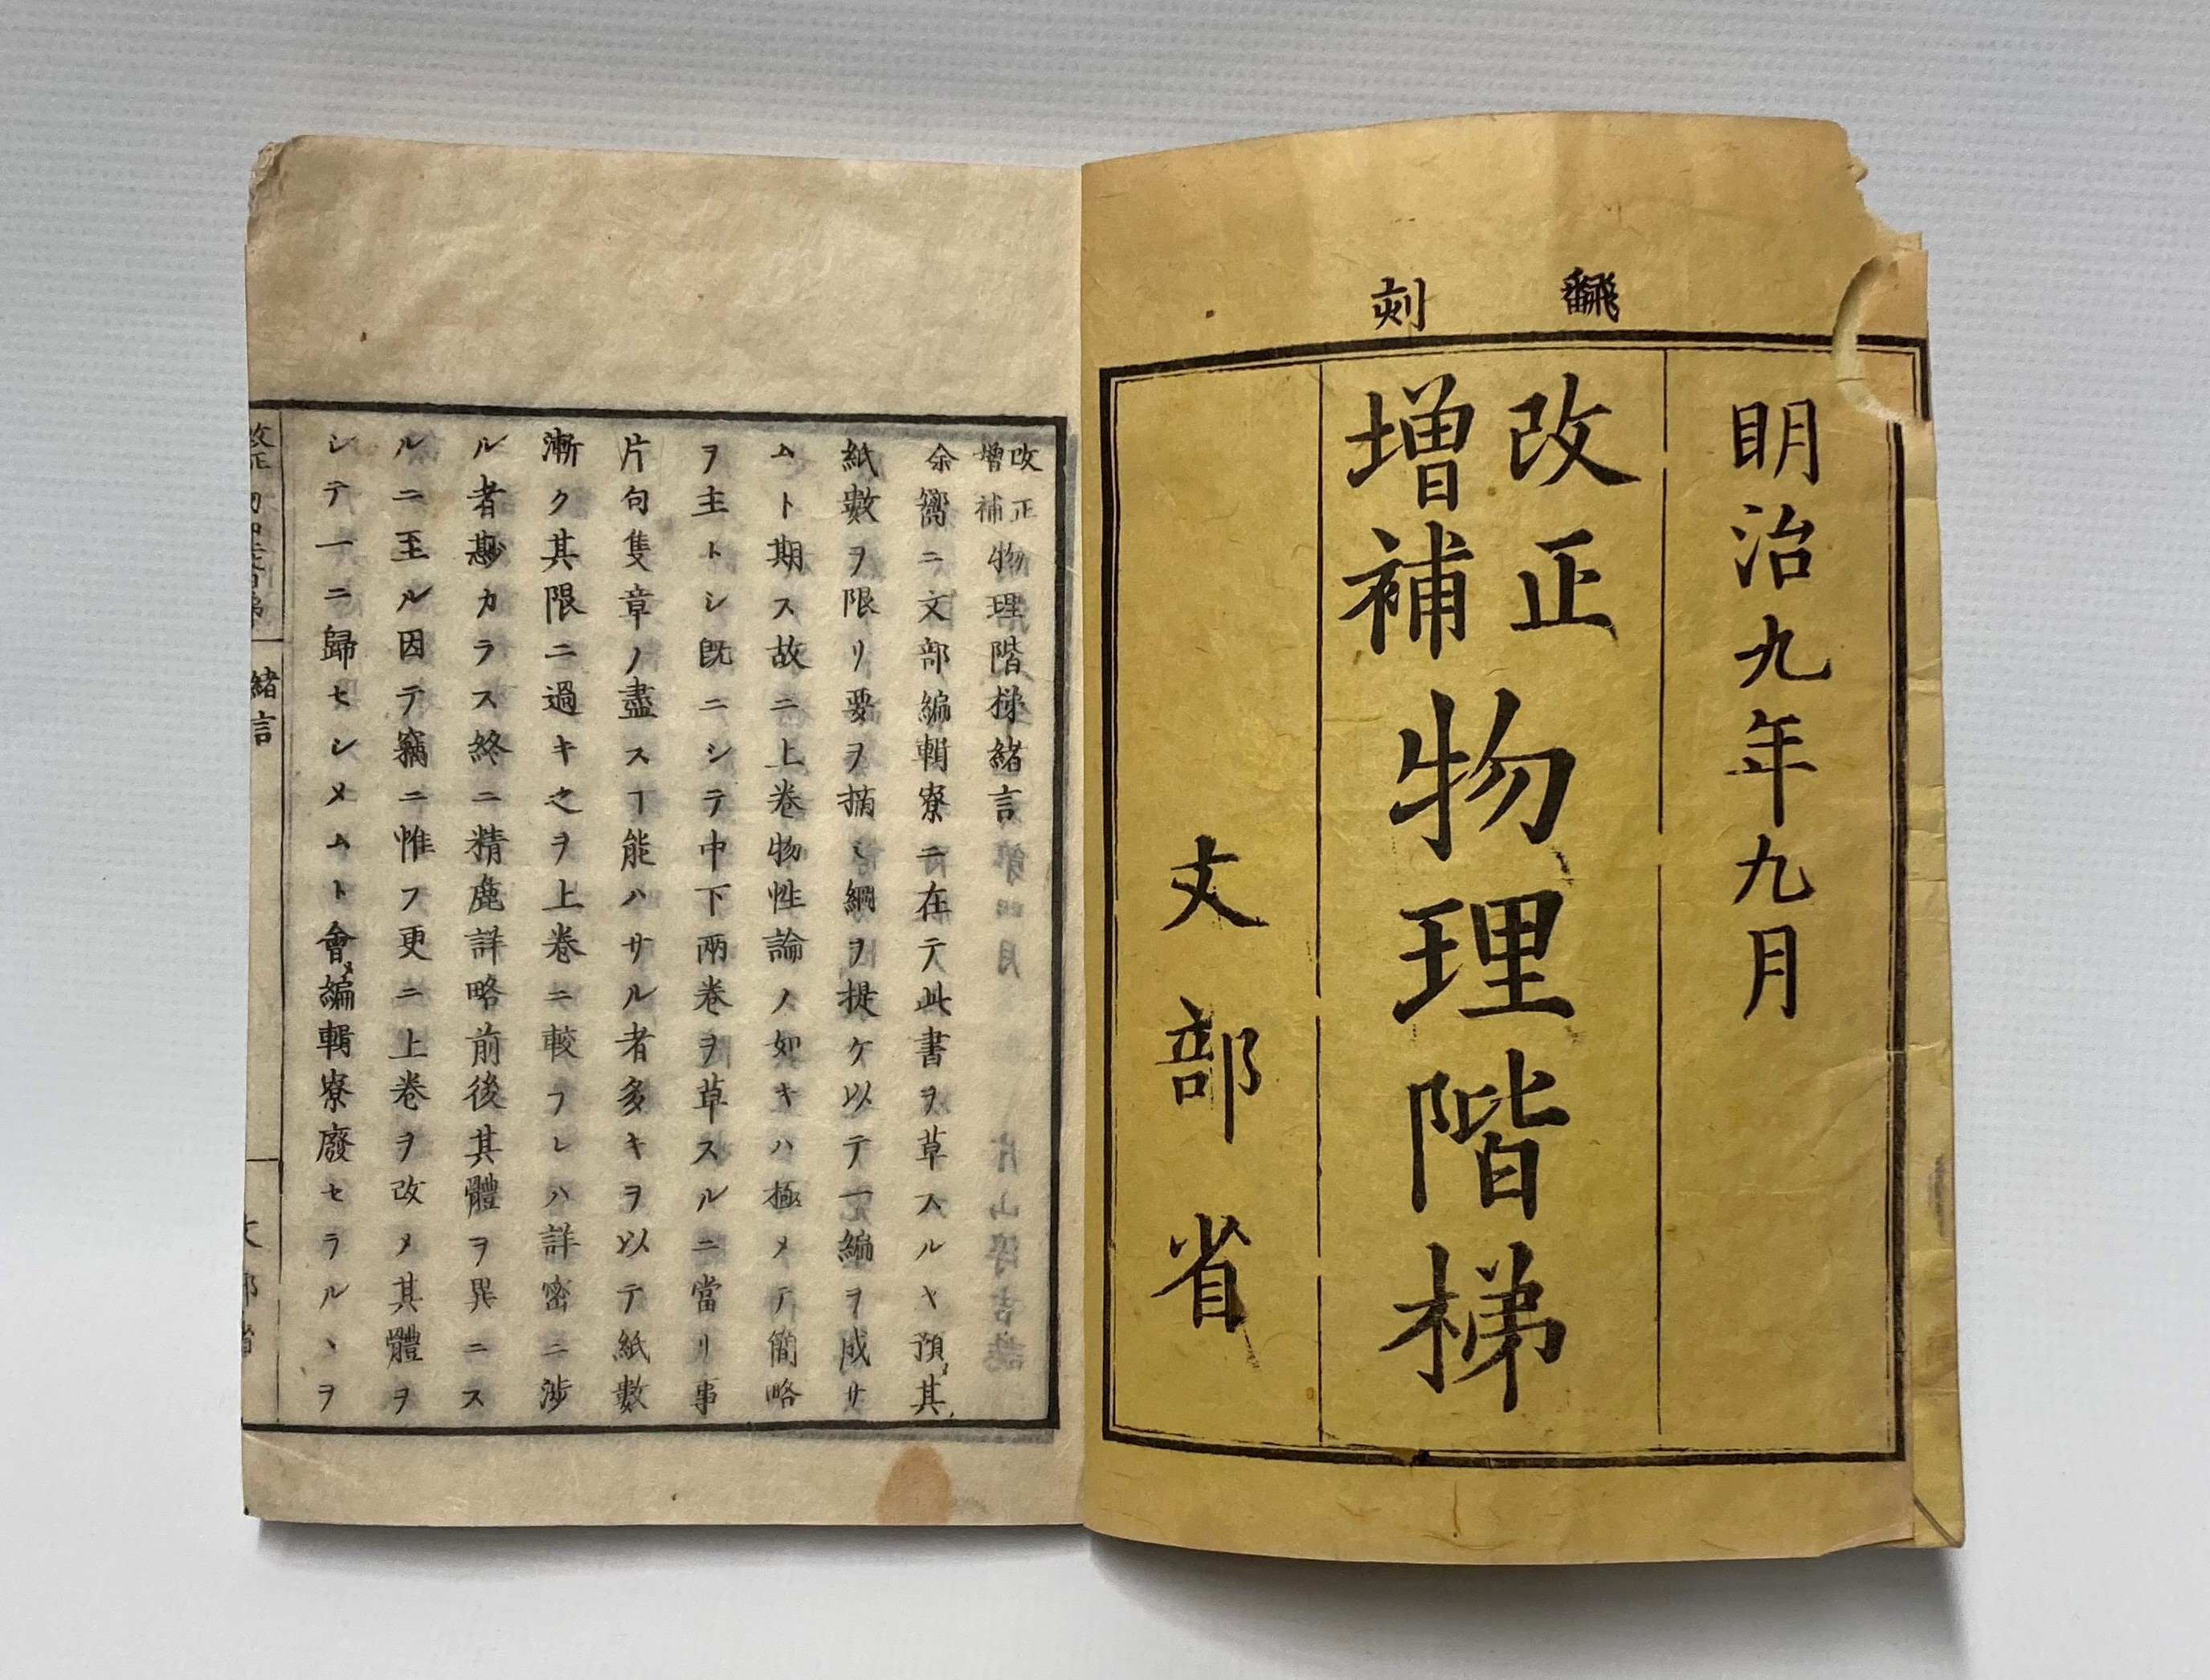 飜刻
明治九年九月
改正
增補
物理階梯
文部省
改正增補物理階梯緒言
余嚮ニ文部編輯寮ニ在テ此書ヲ草スルヤ預メ其
紙數ヲ限リ要ヲ摘ミ綱ヲ提ケ以テ一編ヲ成サ
ムト期ス故ニ上卷物性論ノ如キハ極メテ簡略
ヲ主トシ既ニシテ中下兩卷ヲ草スルニ當リ事
片句隻章ノ盡スヿ能ハサル者多キヲ以テ紙數
漸ク其限ニ過キ之ヲ上卷ニ較フレハ詳密ニ涉
ル者尠カラス終ニ精麁詳略前後其體ヲ異ニス
ルニ至ル因テ竊ニ惟フ更ニ上卷ヲ改メ其體ヲ
シテ一ニ歸セシメムト會〻編輯寮廢セラルヽヲ
緒言